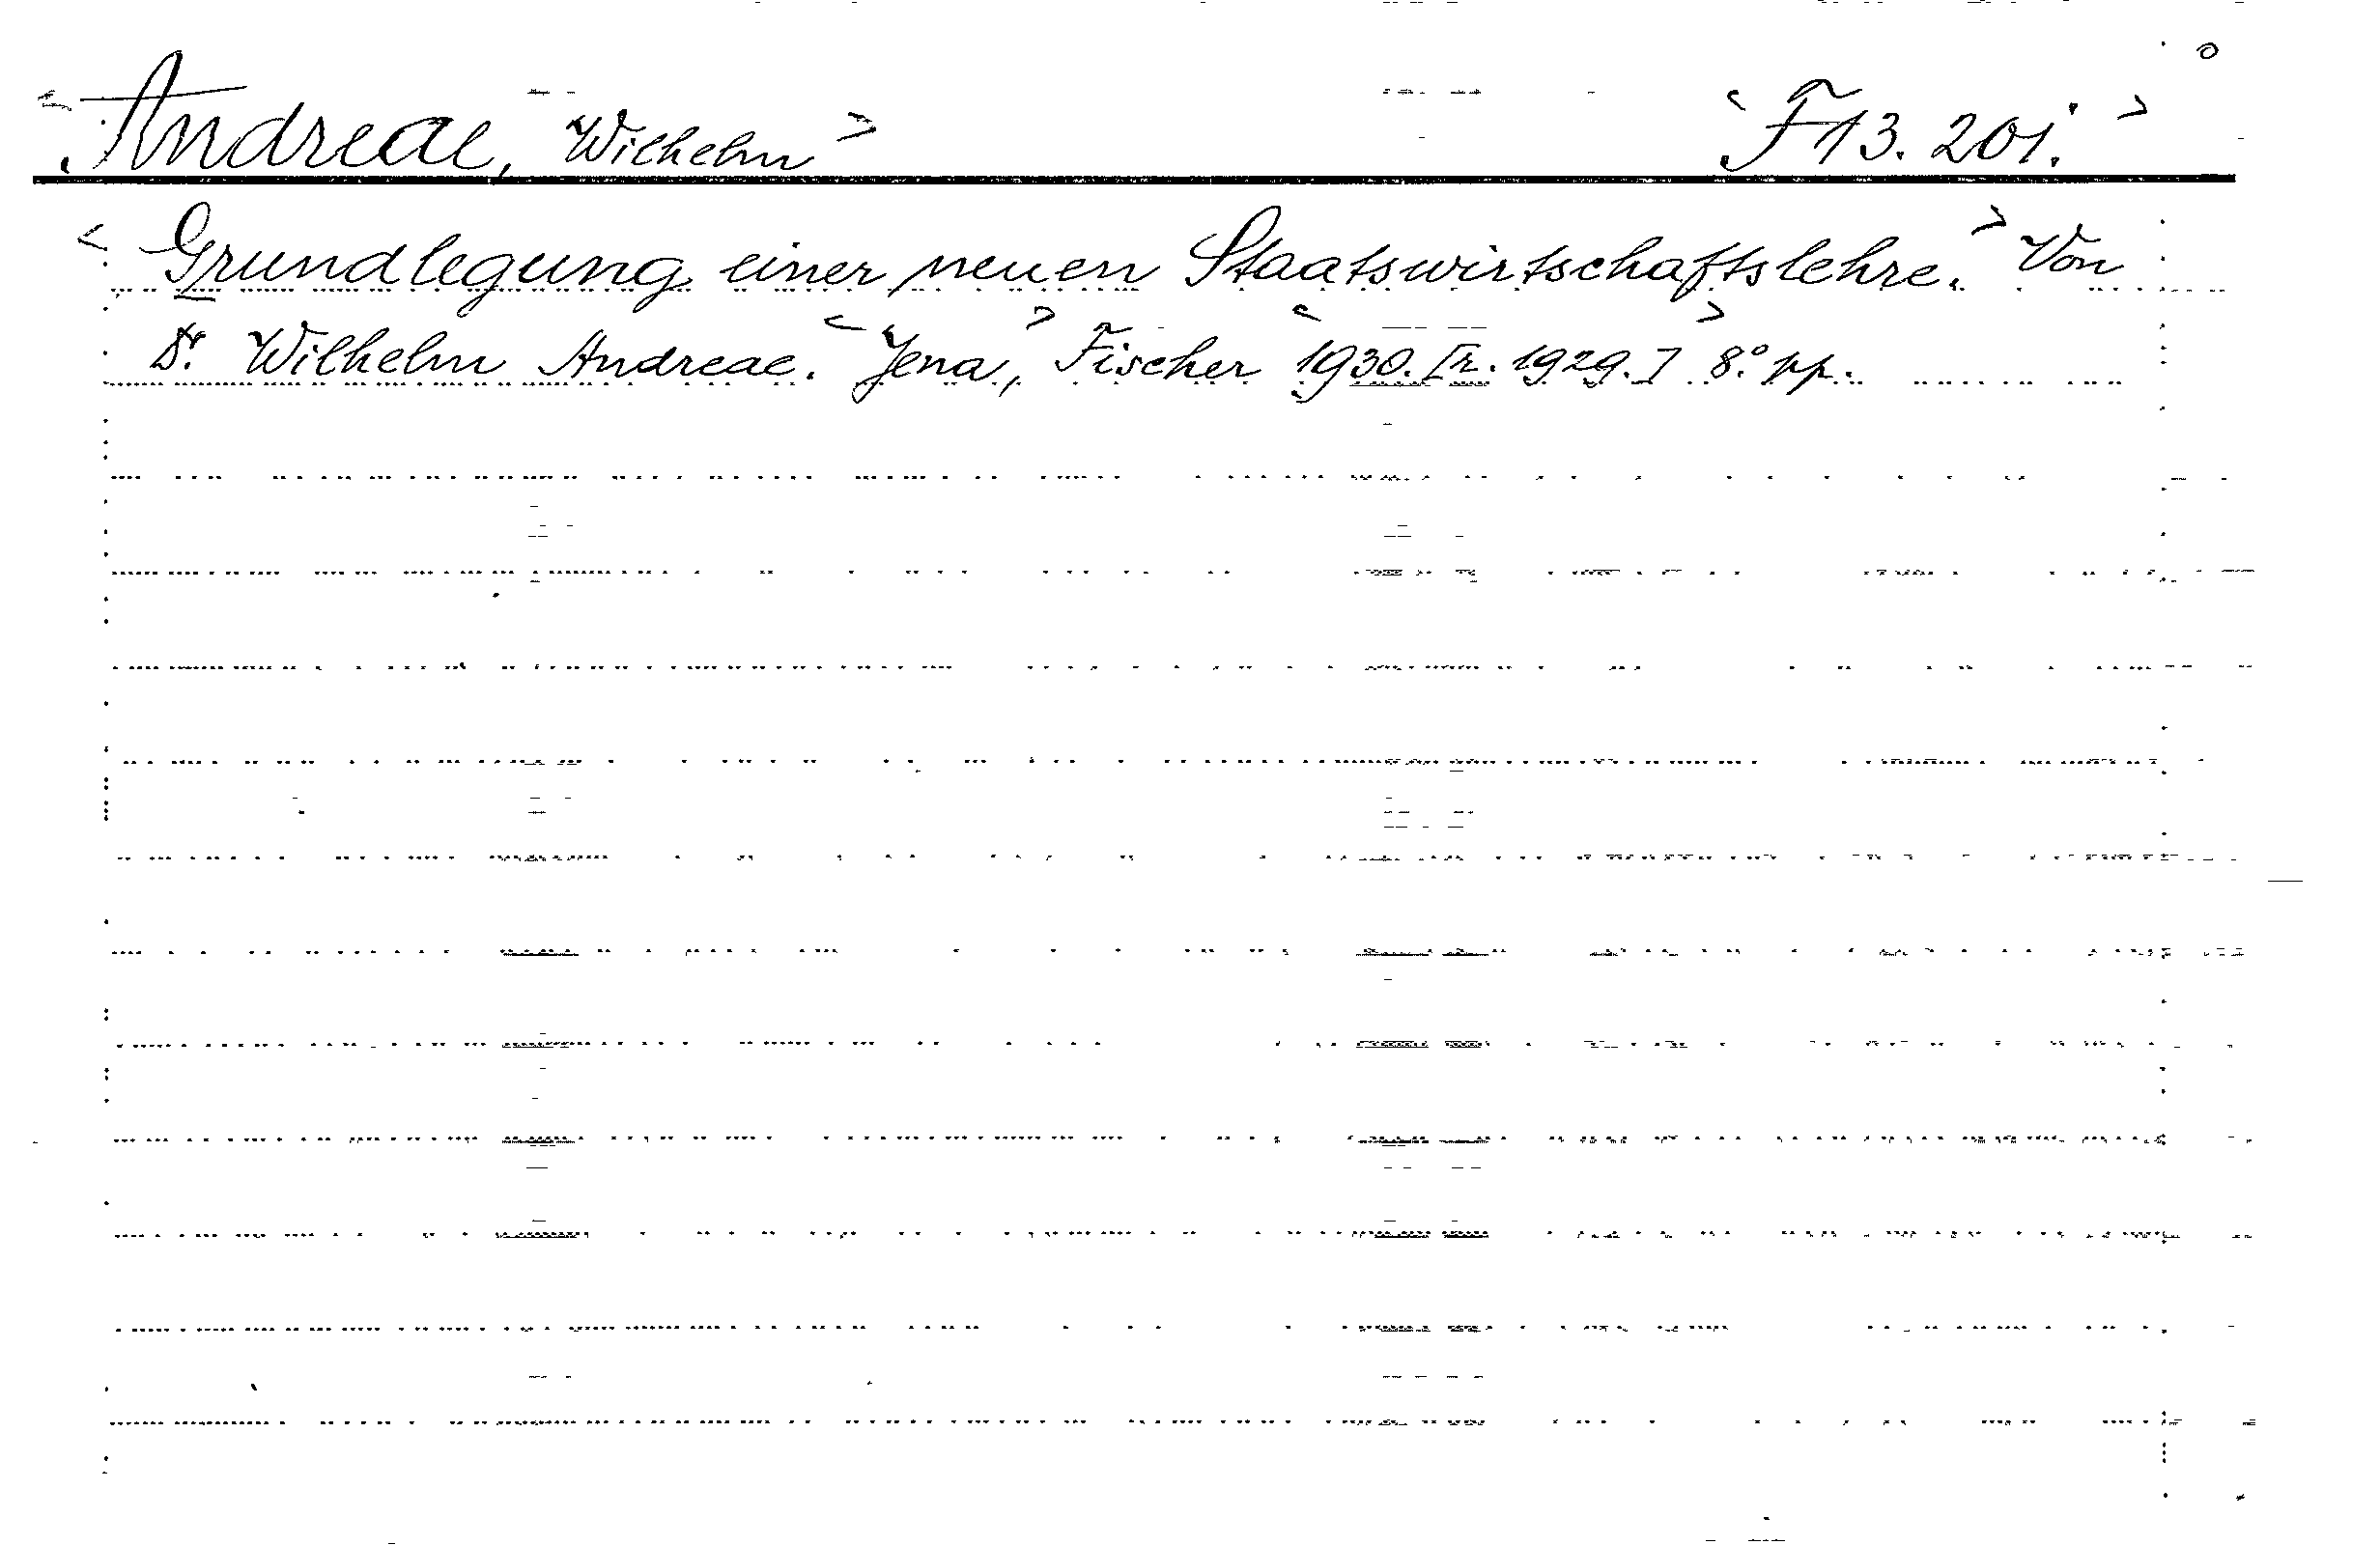 <Andreae, Wilhelm> <F 13.201.>
<Grundlegung einer neuen Staatswirtschaftslehre.> Von
Dr. Wilhelm Andreae. <Jena,> Fischer <1930. [r. 1929.]> 8.° pp.